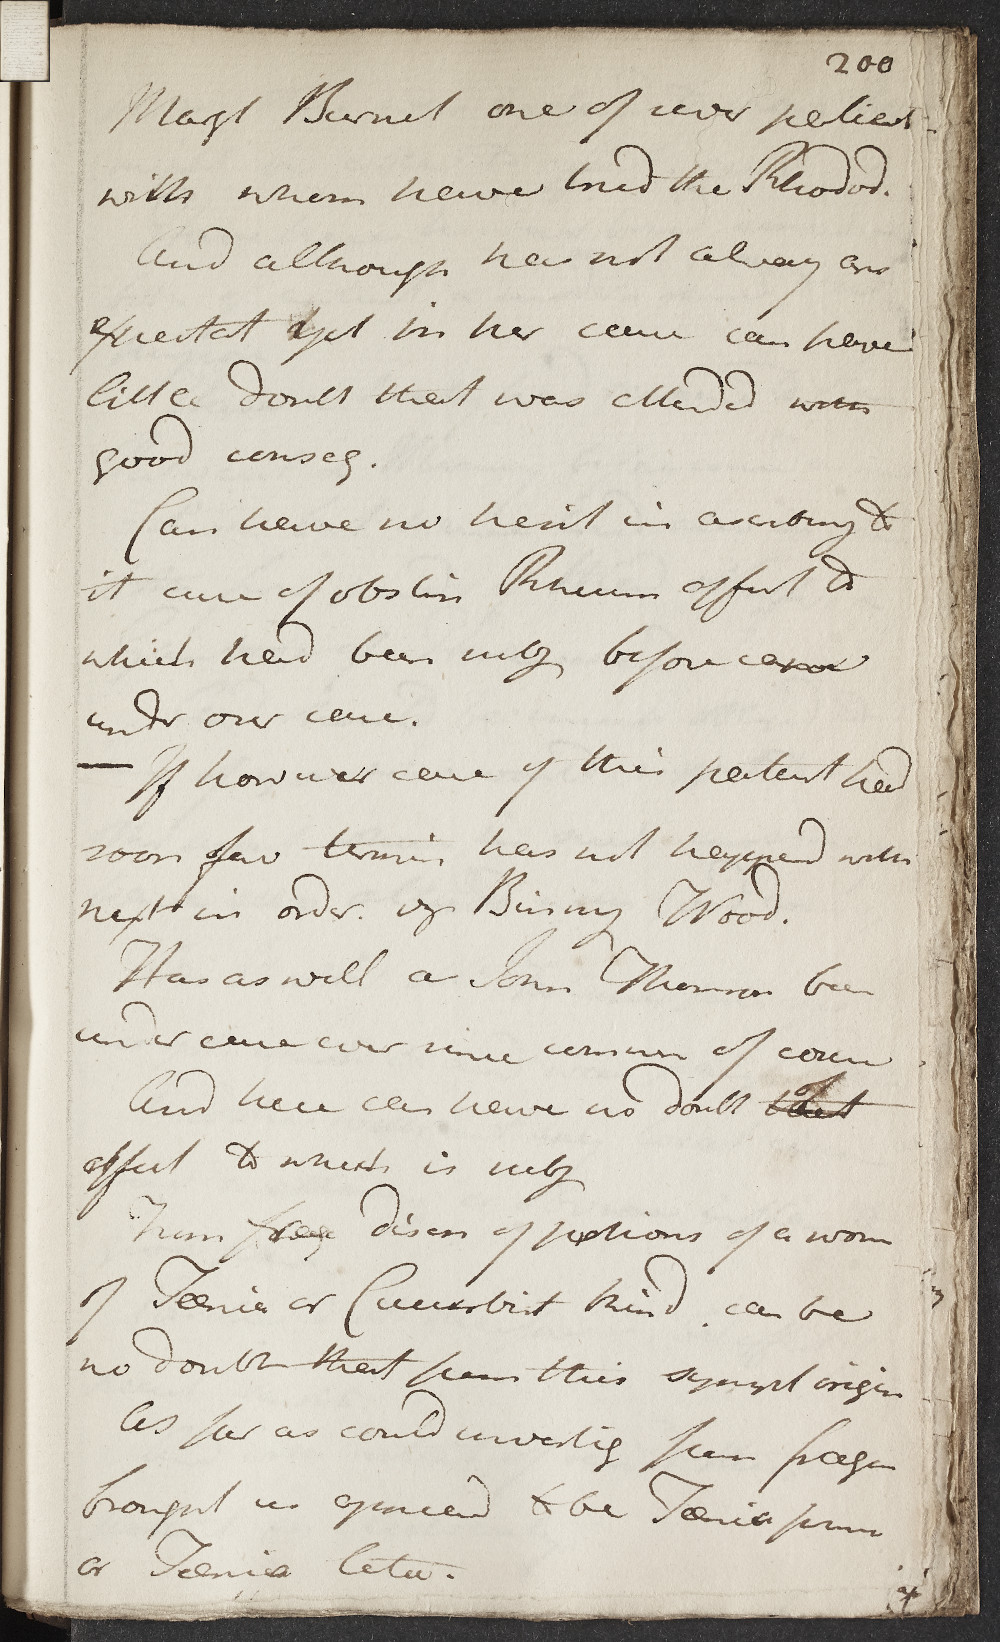 200
Margt Burnet one of our patients
with whom have tried the Rhodod.
And although has not alway ans
expectat yet in her case can have
little doubt that was attended with
good conseq.
Can have no hesit in ascribing to
it cure of obstin Rheum affect to
which had been subj before came
under our care.
If however case of this patient had
soon fav termin has not happend with
next in order. viz Binny Wood.
Has as well as John Thomson been
under care ever since commen of course
And here can have no doubt that
affect to which is subj
From freq disch of portions of a worm
of Taenia or Cucurbit kind can be
no doubt that from this sympt origin
As far as could investig from fragm
brought us appeard to be Taenia
or Taenia lata.